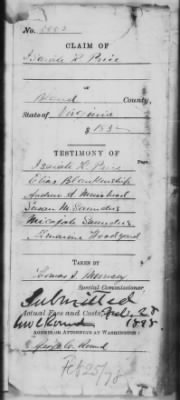 No. 8002
CLAIM OF
Isaiah L. Price
of
Bland County,
State of Virginia
$ 835
TESTIMONY OF
Page.
Isaiah L. Price
Elias Blankenship
Andrew A. Muirhead
Susan M. Saunders
Micajah Saunders
Woodyard
TAKEN BY
Thomas S.
Special Commissioner.
Submitted
Actual Fees and Costs, Feb. 28
1888.
ATTORNEY AT WASHINGTON:
Feb 25/78